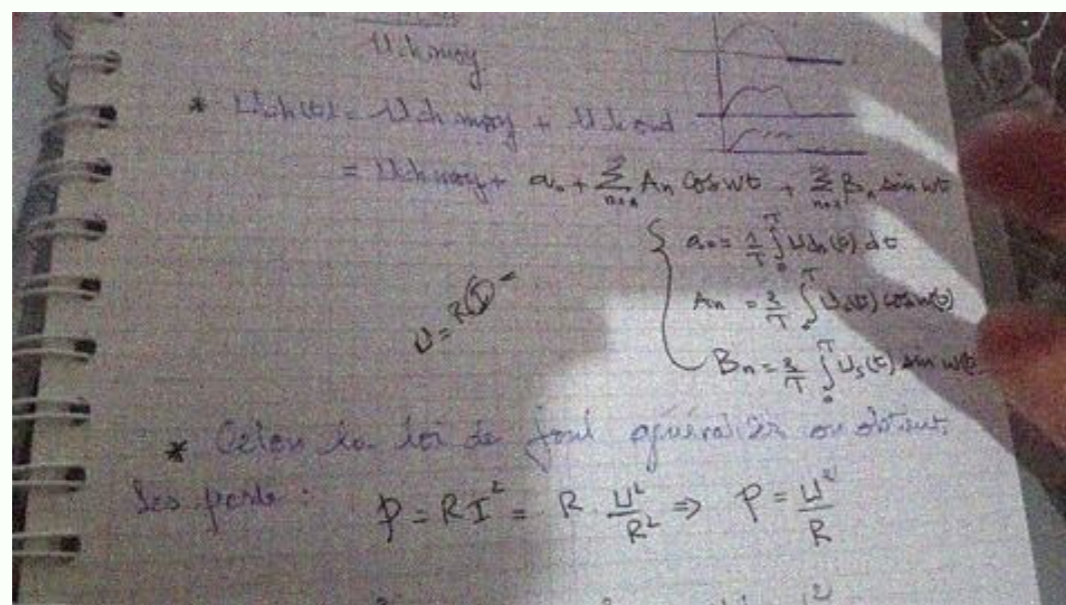 Uch moy
* Uch(t) = Uch moy + Uch ond
= Uch moy + a₀ + Σ n=1 An cos wt + Σ n=1 Bn sin wt
a₀ = 1/T ∫₀ᵀ Uch(t) dt
An = 2/T ∫₀ᵀ Us(t) cos w(t)
U = RI
Bn = 2/T ∫₀ᵀ Us(t) sin wt
* Celon la loi de joul généraliser on obtient
Les perte : P = RI² = R U²/R² ⇒ P = U²/R